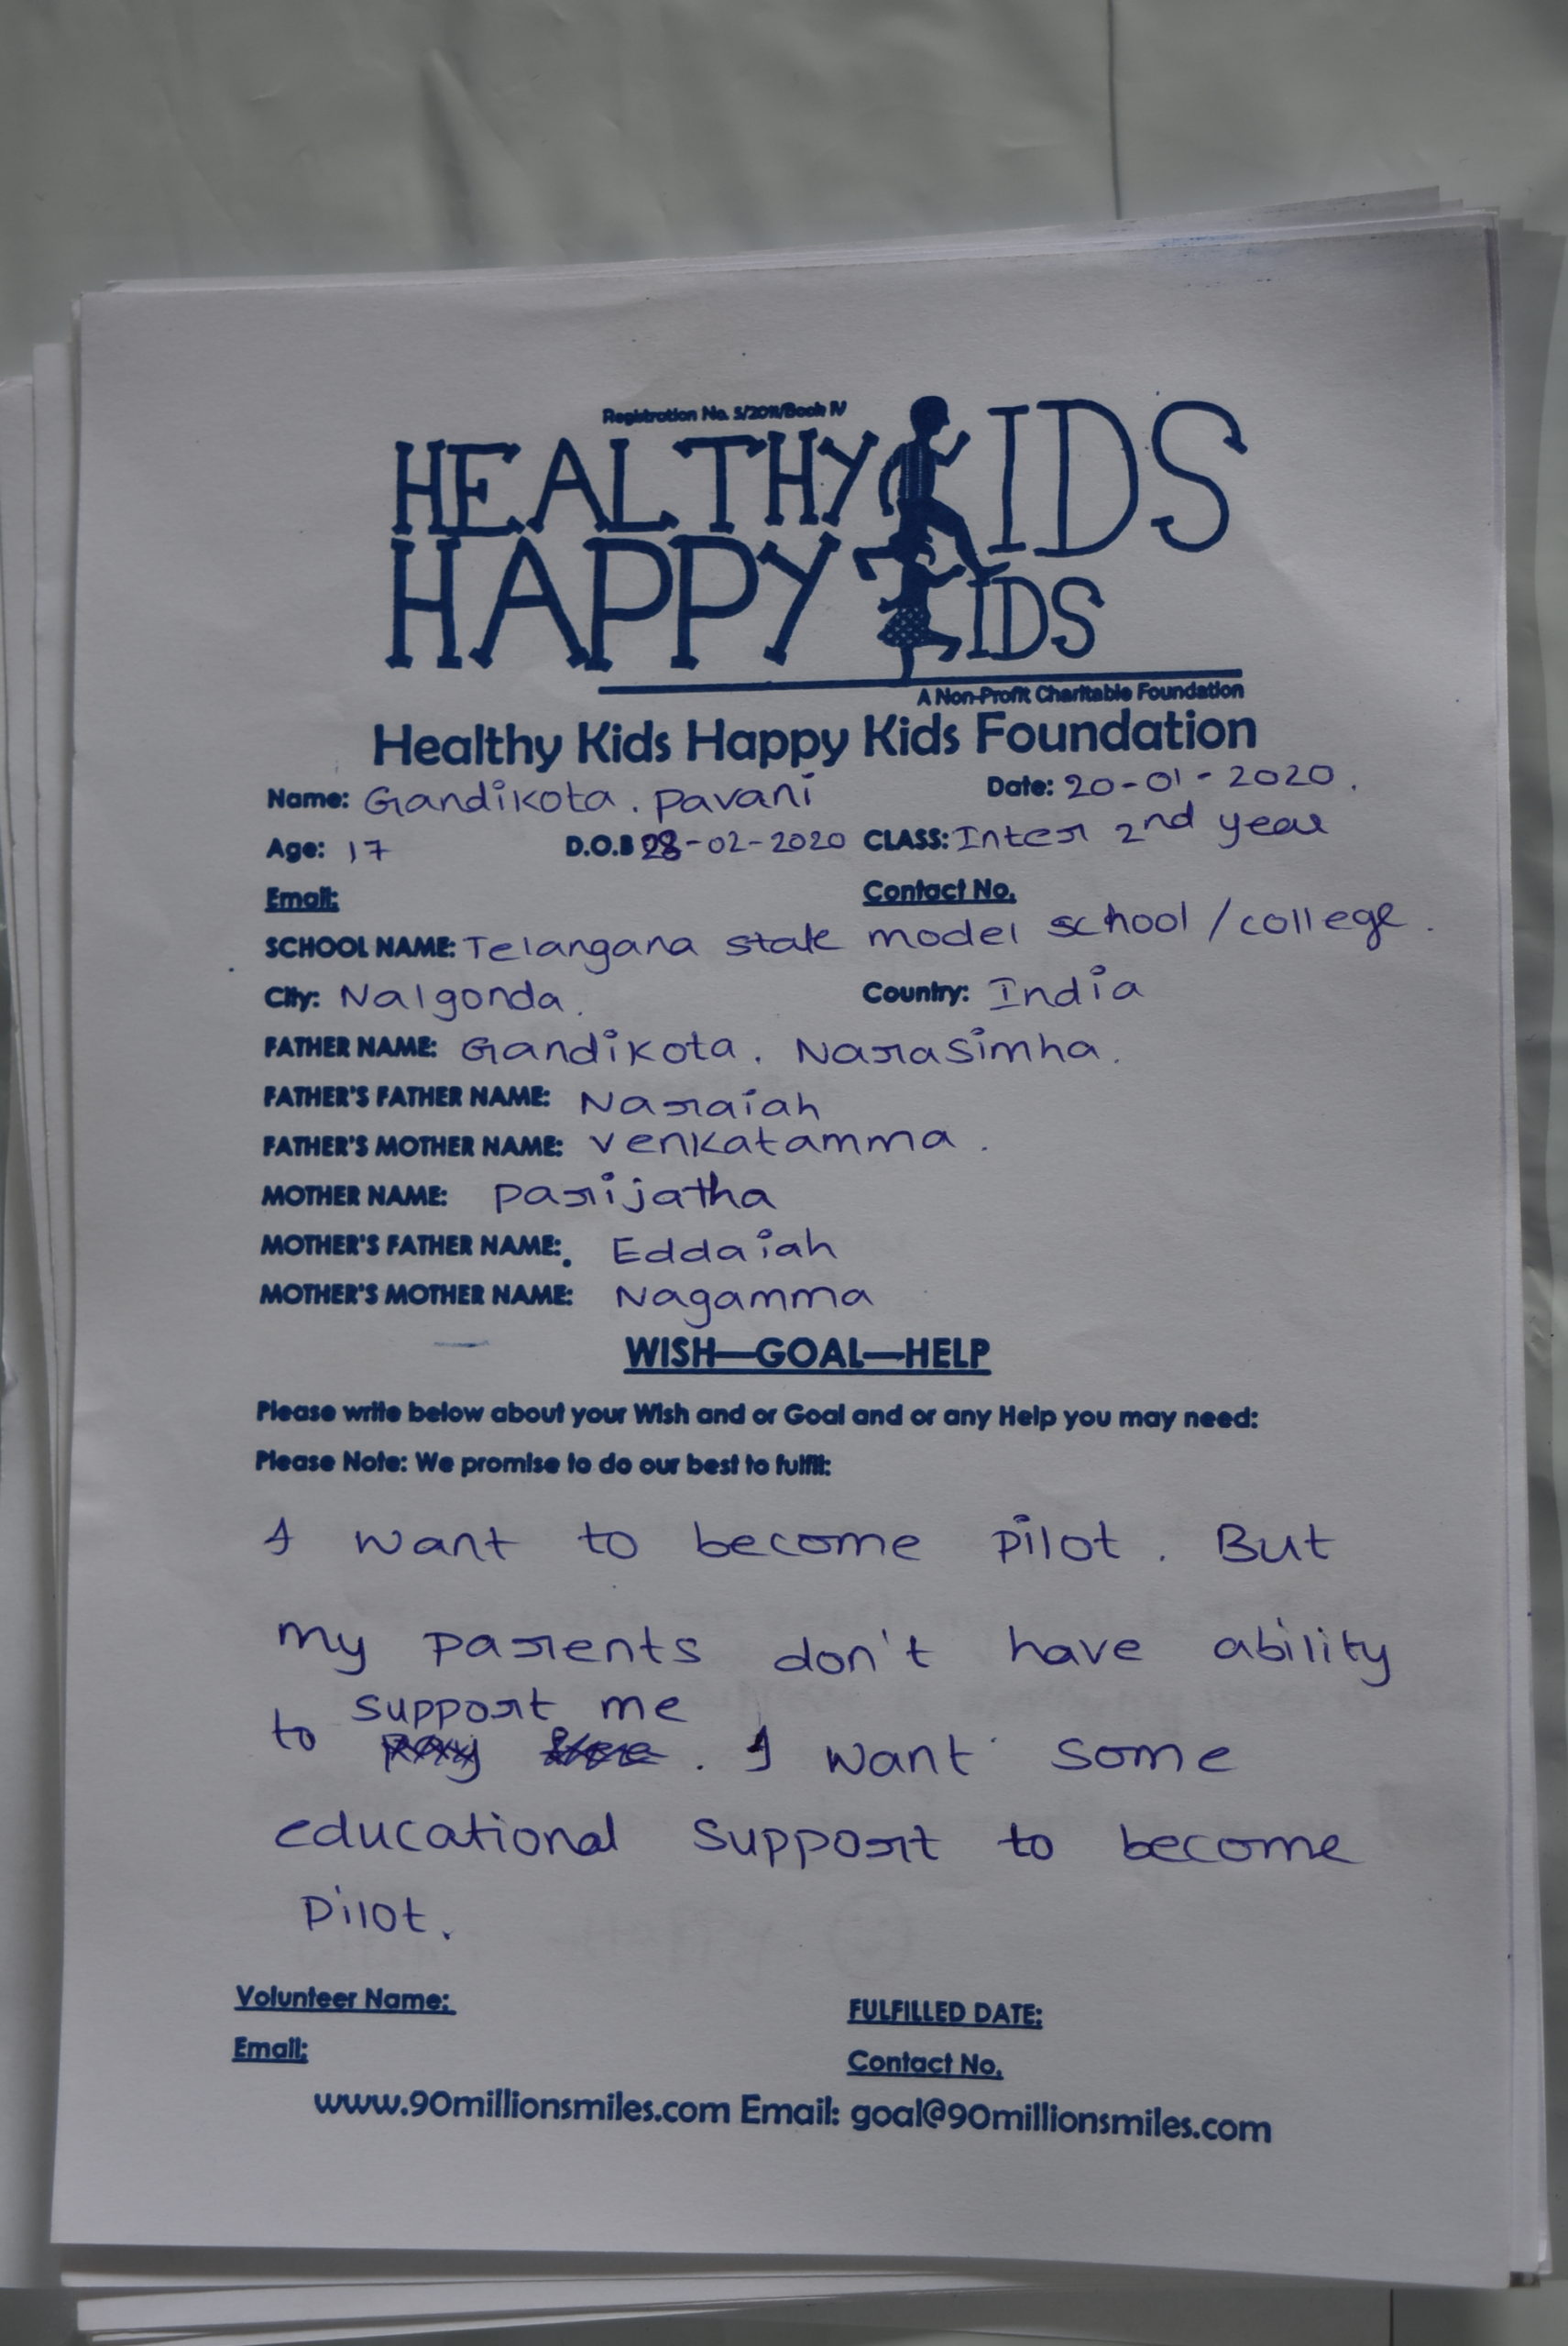 Registration No. 5/2011/Book IV
HEALTHY KIDS
HAPPY KIDS
A Non-Profit Charitable Foundation
Healthy Kids Happy Kids Foundation
Name: Gandikota. pavani Date: 20-01-2020.
Age: 17 D.O.B 28-02-2020 CLASS: Inter 2nd year
Email: Contact No.
SCHOOL NAME: Telangana state model school/college.
City: Nalgonda. Country: India
FATHER NAME: Gandikota. Narasimha.
FATHER'S FATHER NAME: Naraiah
FATHER'S MOTHER NAME: venkatamma.
MOTHER NAME: parijatha
MOTHER'S FATHER NAME: Eddaiah
MOTHER'S MOTHER NAME: Nagamma
WISH—GOAL—HELP
Please write below about your Wish and or Goal and or any Help you may need:
Please Note: We promise to do our best to fulfil:
I want to become pilot. But
my parents don't have ability
to support me. I want some
educational support to become
pilot.
Volunteer Name: FULFILLED DATE:
Email: Contact No.
www.90millionsmiles.com Email: goal@90millionsmiles.com